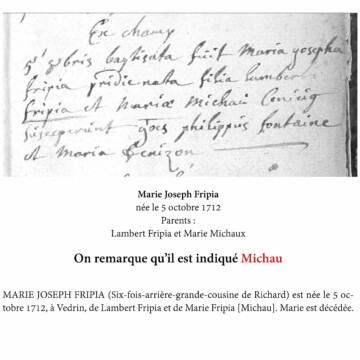 Ex champ
5ᵃ 8bris baptisata fuit Maria josepha
fripia pridie nata filia Lamberti
fripia et Mariæ Michau Coniug
susceperunt philippus fontaine
et Maria Genizon
Marie Joseph Fripia
née le 5 octobre 1712
Parents :
Lambert Fripia et Marie Michaux
On remarque qu'il est indiqué Michau
MARIE JOSEPH FRIPIA (Six-fois-arrière-grande-cousine de Richard) est née le 5 oc-
tobre 1712, à Vedrin, de Lambert Fripia et de Marie Fripia [Michau]. Marie est décédée.